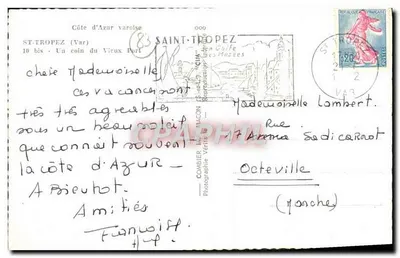 Côte d'Azur varoise
ST-TROPEZ (Var)
38 bis - Un coin du Vieux Port
SAINT-TROPEZ
son Golfe
ses Plages
VAR
0,20
COMBIER MACON
Chère Mademoiselle
ces vacances sont
très très agréables
sous un beau soleil
que connaît souvent
la côte d'AZUR -
A Bientôt.
Amitiés
Françoise
Mademoiselle Lambert.
Rue
17 Sadi carnot
Octeville
(Manche)